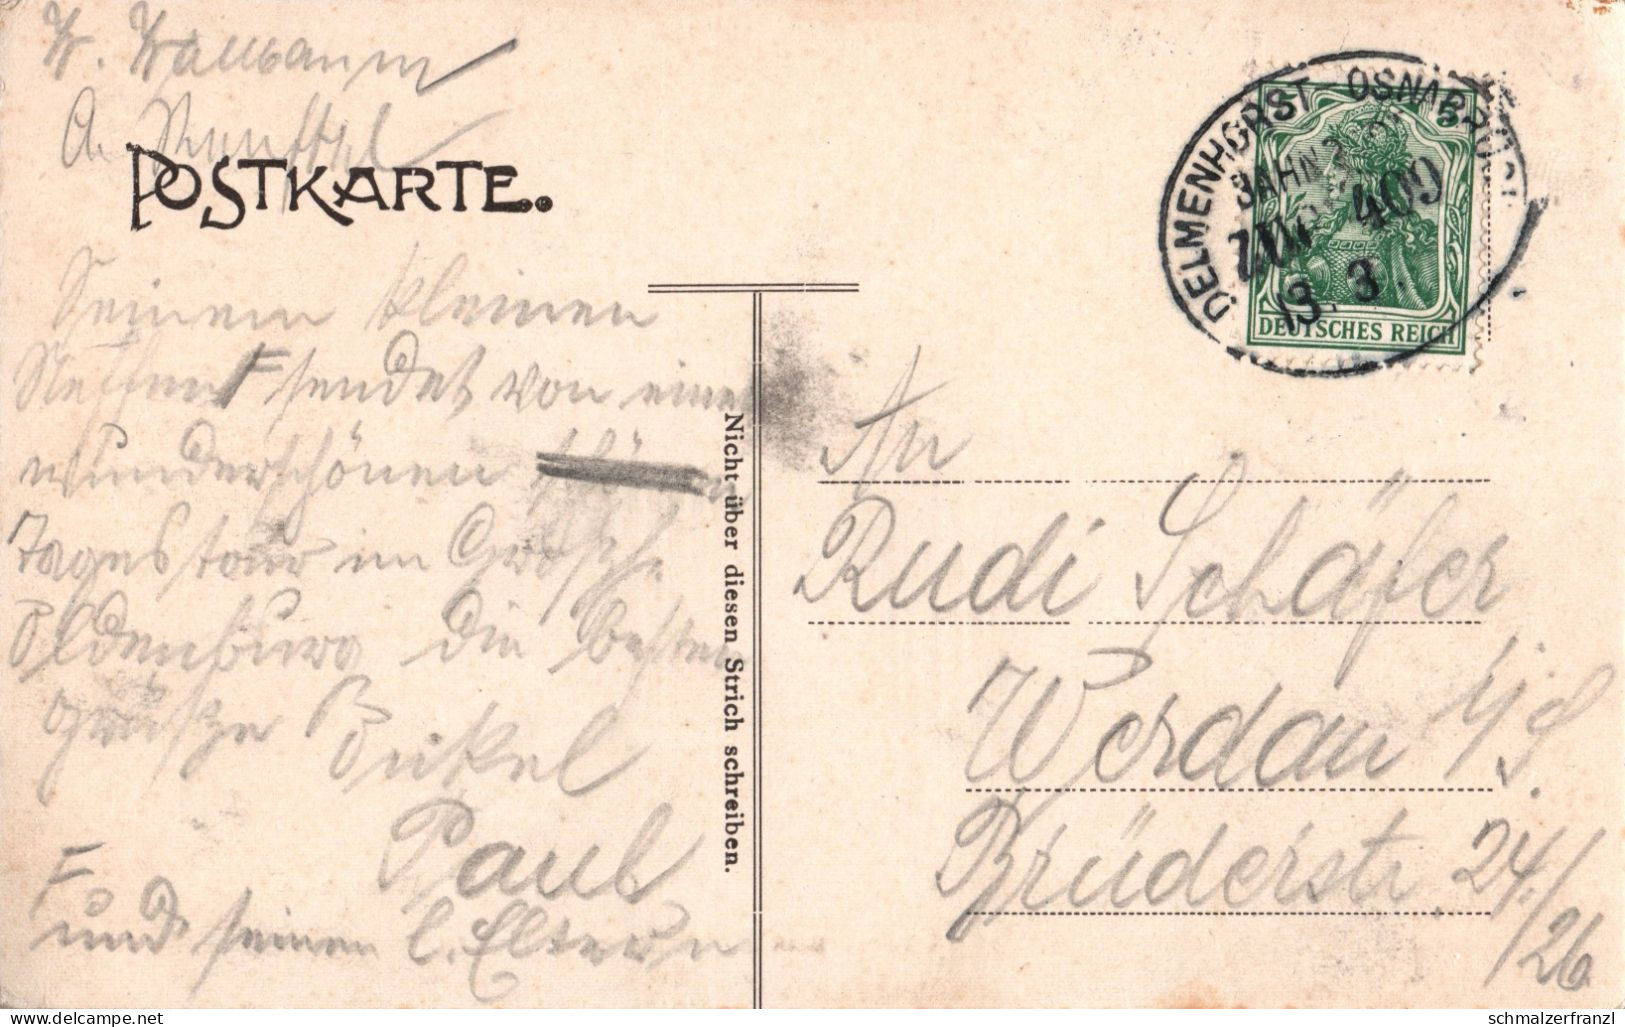 W. Wallbaum
A.
POSTKARTE.
Seinem kleinen
Neffen F sendet von einer
wunderschönen
Tagestour im Großh.
Oldenburg die besten
Grüße Onkel
Paul
F
und seinen l. Eltern
Nicht über diesen Strich schreiben.
DELMENHORST OSNABRÜCK
BAHNP
ZUG 409
13. 3
5
DEUTSCHES REICH
An
Rudi Schäfer
Werdau i/S.
Brüderstr. 24./
/26
www.delcampe.net
schmalzerfranzl